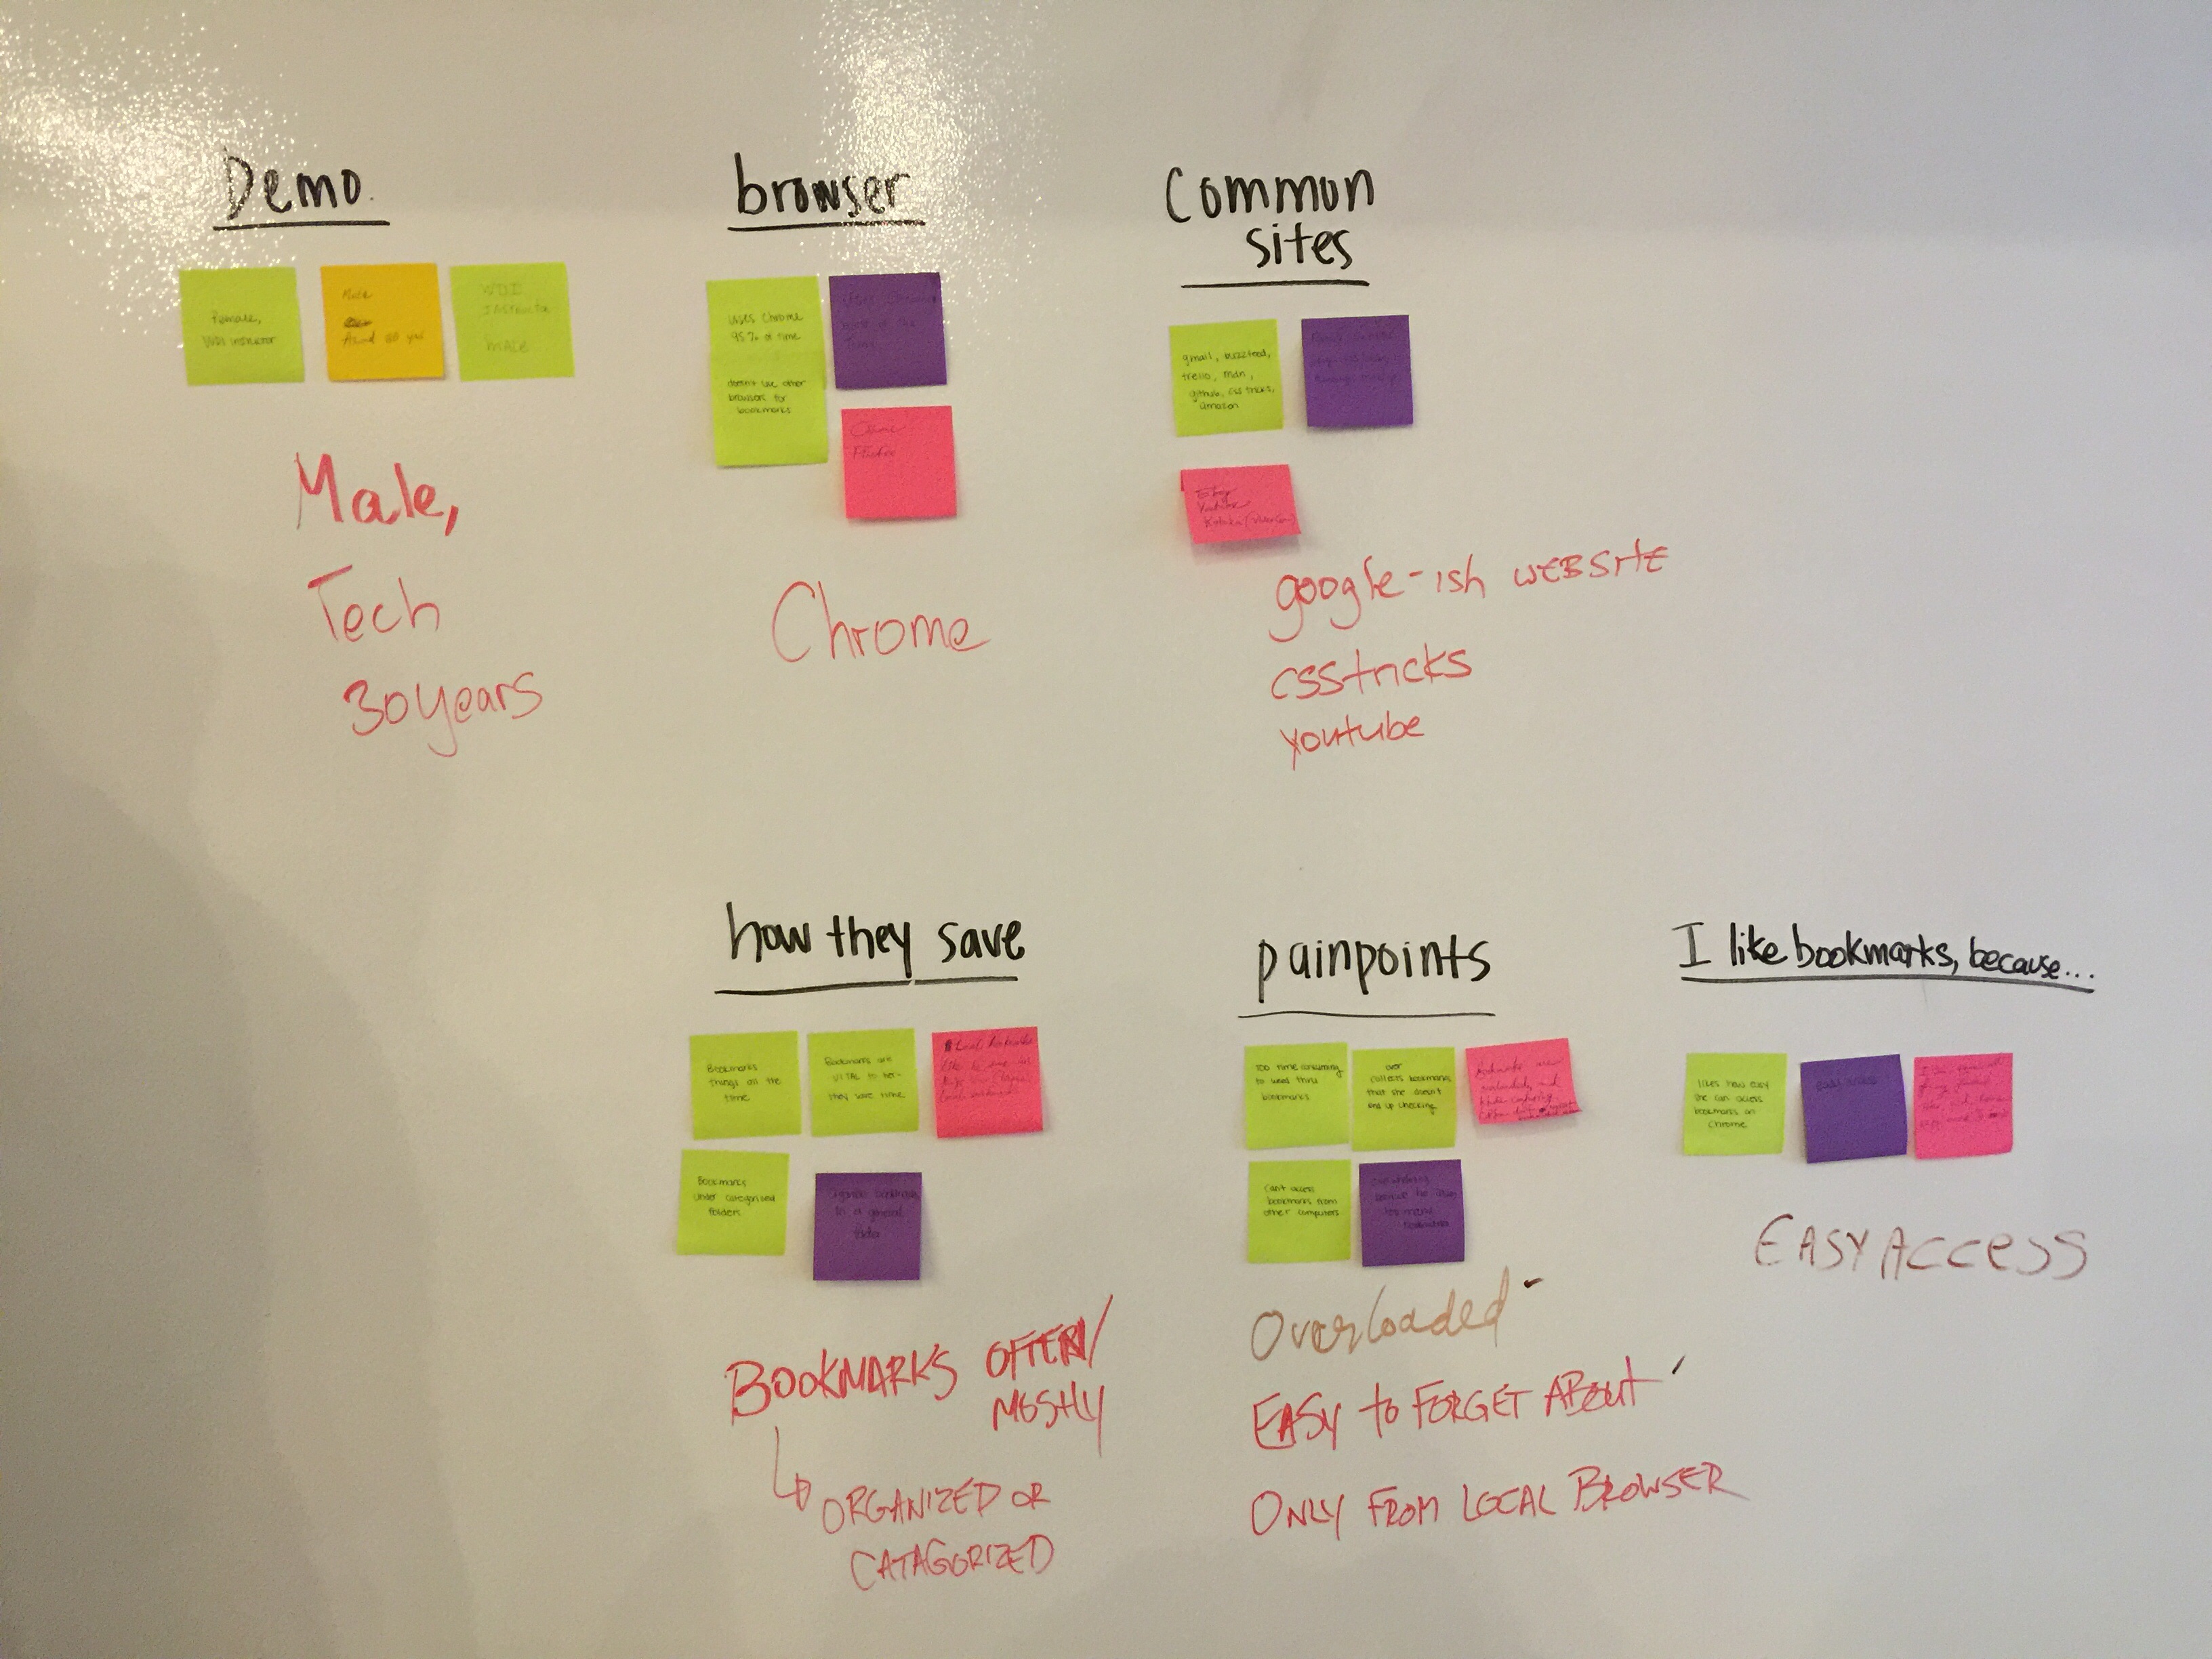 Demo.
Female,
WDI instructor
Male
Around 30 yrs
WDI
Instructor
Male
Male,
Tech
30years
browser
Uses Chrome
95% of time
doesn't use other
browsers for
bookmarks
Uses Chrome
most of the
time
Chrome
Firefox
Chrome
Common
sites
gmail, buzzfeed,
trello, mdn,
github, css tricks,
amazon
Etsy
Youtube
google-ish WEBSITE
csstricks
youtube
how they save
Bookmarks
things all the
time
Bookmarks are
VITAL to her-
they save time
Bookmarks
under categorized
folders
Organize bookmarks
in a general
folder
BOOKMARKS OFTEN/
MOSTLY
ORGANIZED OR
CATAGORIZED
painpoints
too time consuming
to weed thru
bookmarks
over
collects bookmarks
that she doesn't
end up checking
bookmarks are
overloaded, and
Can't access
bookmarks from
other computers
too many
bookmarks
Overloaded
EASY to FORGET ABOUT
ONLY FROM LOCAL BROWSER
I like bookmarks, because...
likes how easy
she can access
bookmarks on
Chrome
EASY ACCESS